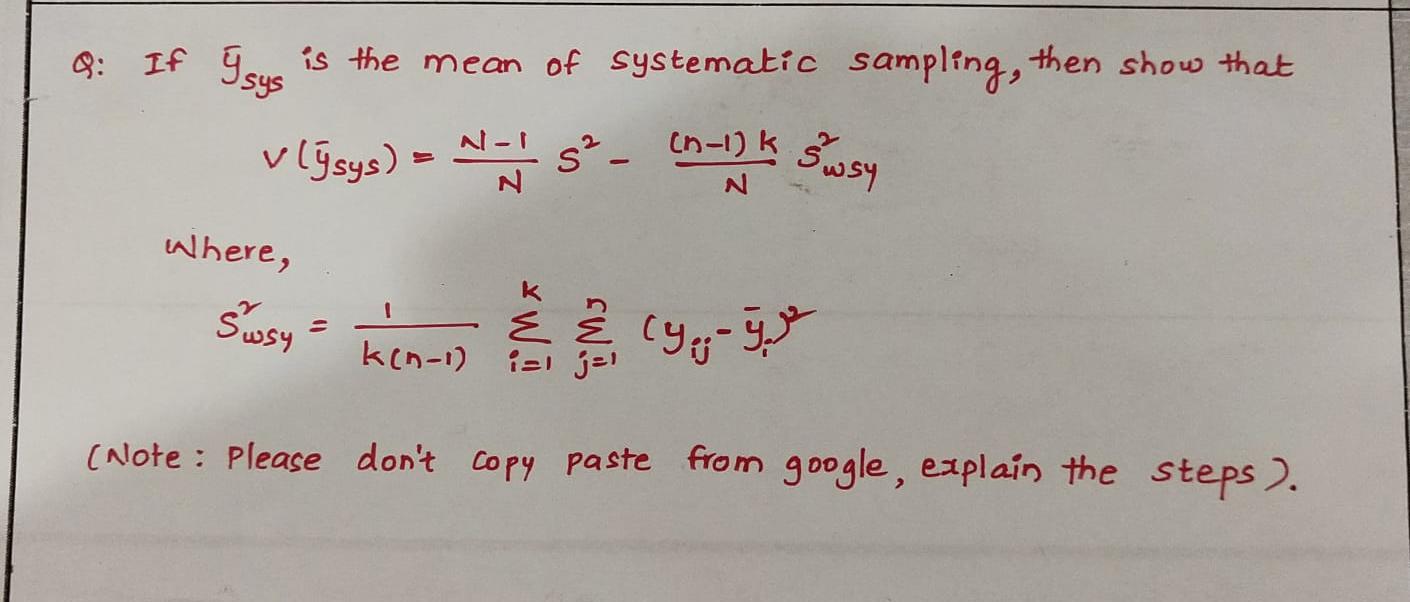 Q: If ȳsys is the mean of systematic sampling, then show that
V(ȳsys) = N-1/N S² - (n-1)k/N S²wsy
Where,
S²wsy = 1/k(n-1) k Σ i=1 n Σ j=1 (yij - ȳi.)²
(Note: Please don't copy paste from google, explain the steps).